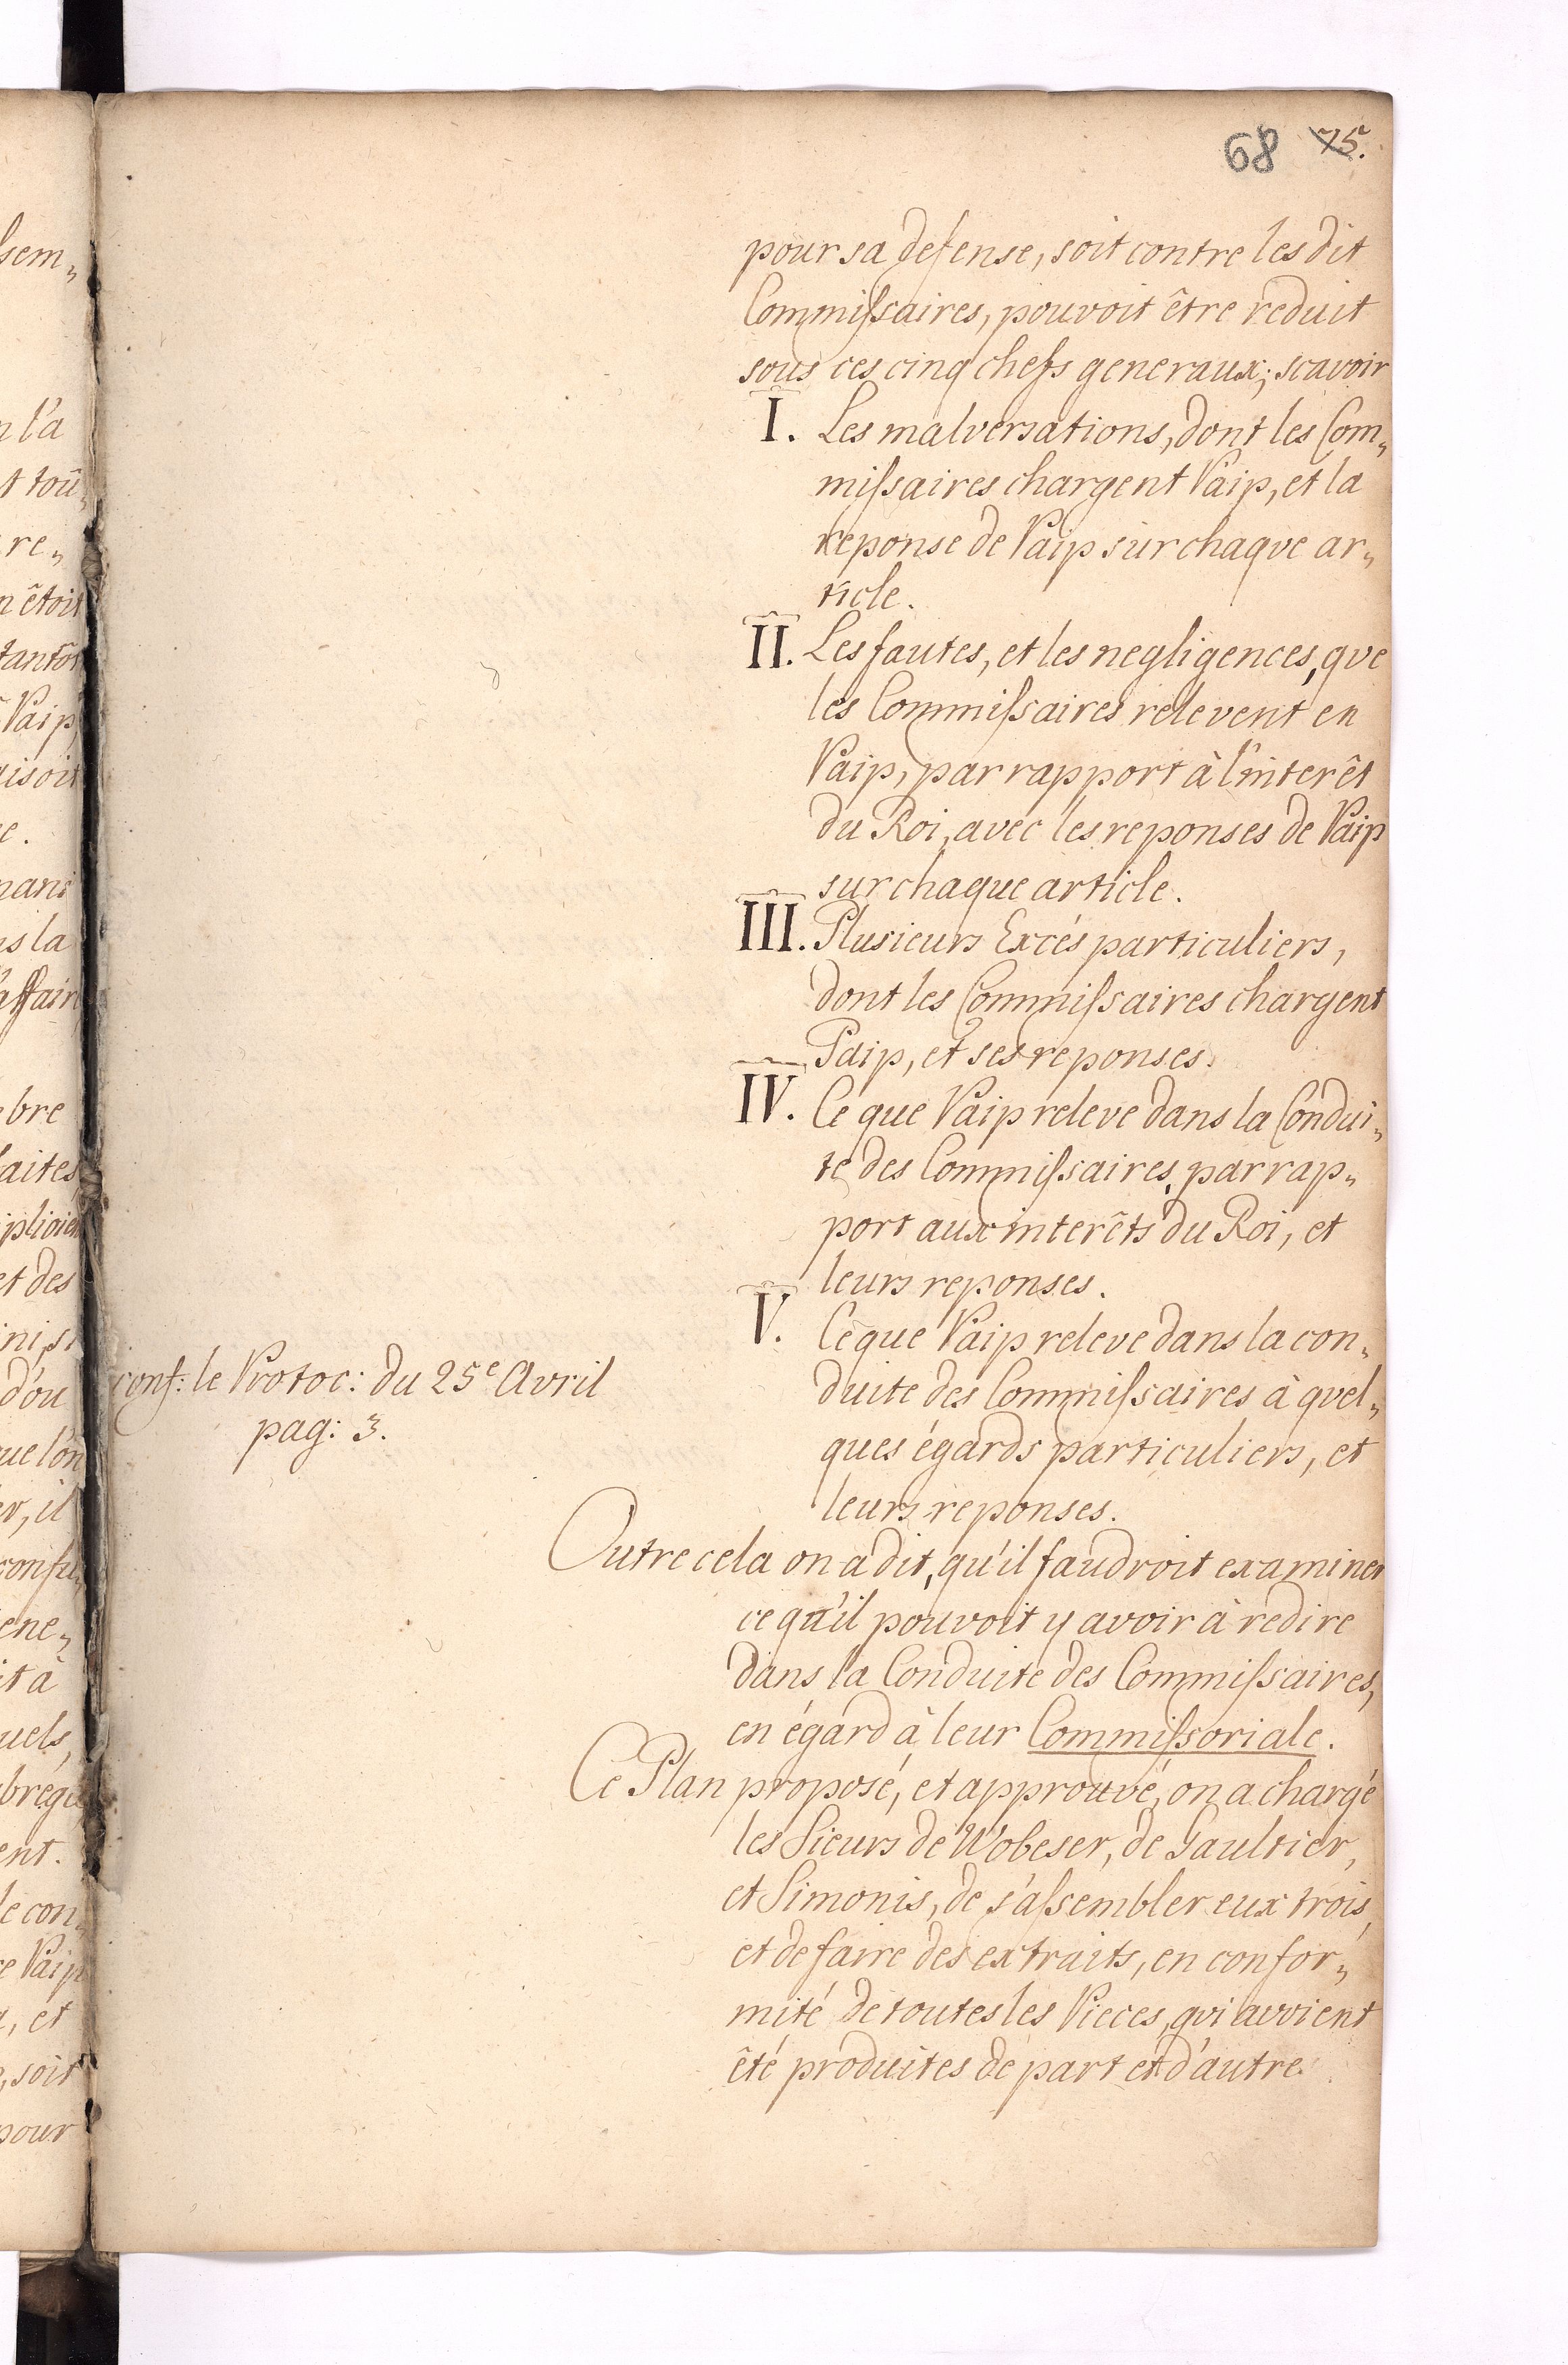 68 75.
pour sa defense, soit contre les dit
Commiſsaires, pouvoit être reduit
sous ces cinq chefs generaux; scavoir
I. Les malversations, dont les Com„
miſsaires chargent Paip, et la
reponse de Paip sur chaque ar„
ticle.
II. Les fautes, et les negligences, que
les Commiſsaires relevent en
Paip, par rapport à l'interêt
du Roi, avec les reponses de Paip
sur chaque article.
III. Plusieurs Excés particuliers,
dont les Commiſsaires chargent
Paip, et ses reponses.
IV. Ce que Paip releve dans la Condui„
te des Commiſsaires, par rap„
port aux interêts du Roi, et
leurs reponses.
V. Ce que Paip releve dans la con„
duite des Commiſsaires à quel„
ques égards particuliers, et
leurs reponses.
conf: le Protoc: du 25e Avril
pag: 3.
Outre cela on a dit, qu'il faudroit examiner
ce qu'il pouvoit y avoir à redire
dans la Conduite des Commiſsaires,
en égard à leur Commiſsoriale.
Ce Plan proposé, et approuvé, on a chargé
les Sieurs de Wobeser, de Gaultier,
et Simonis, de s'aſsembler eux trois,
et de faire des extraits, en confor„
mité de toutes les Pieces, qui avoient
êté produites de part et d'autre.